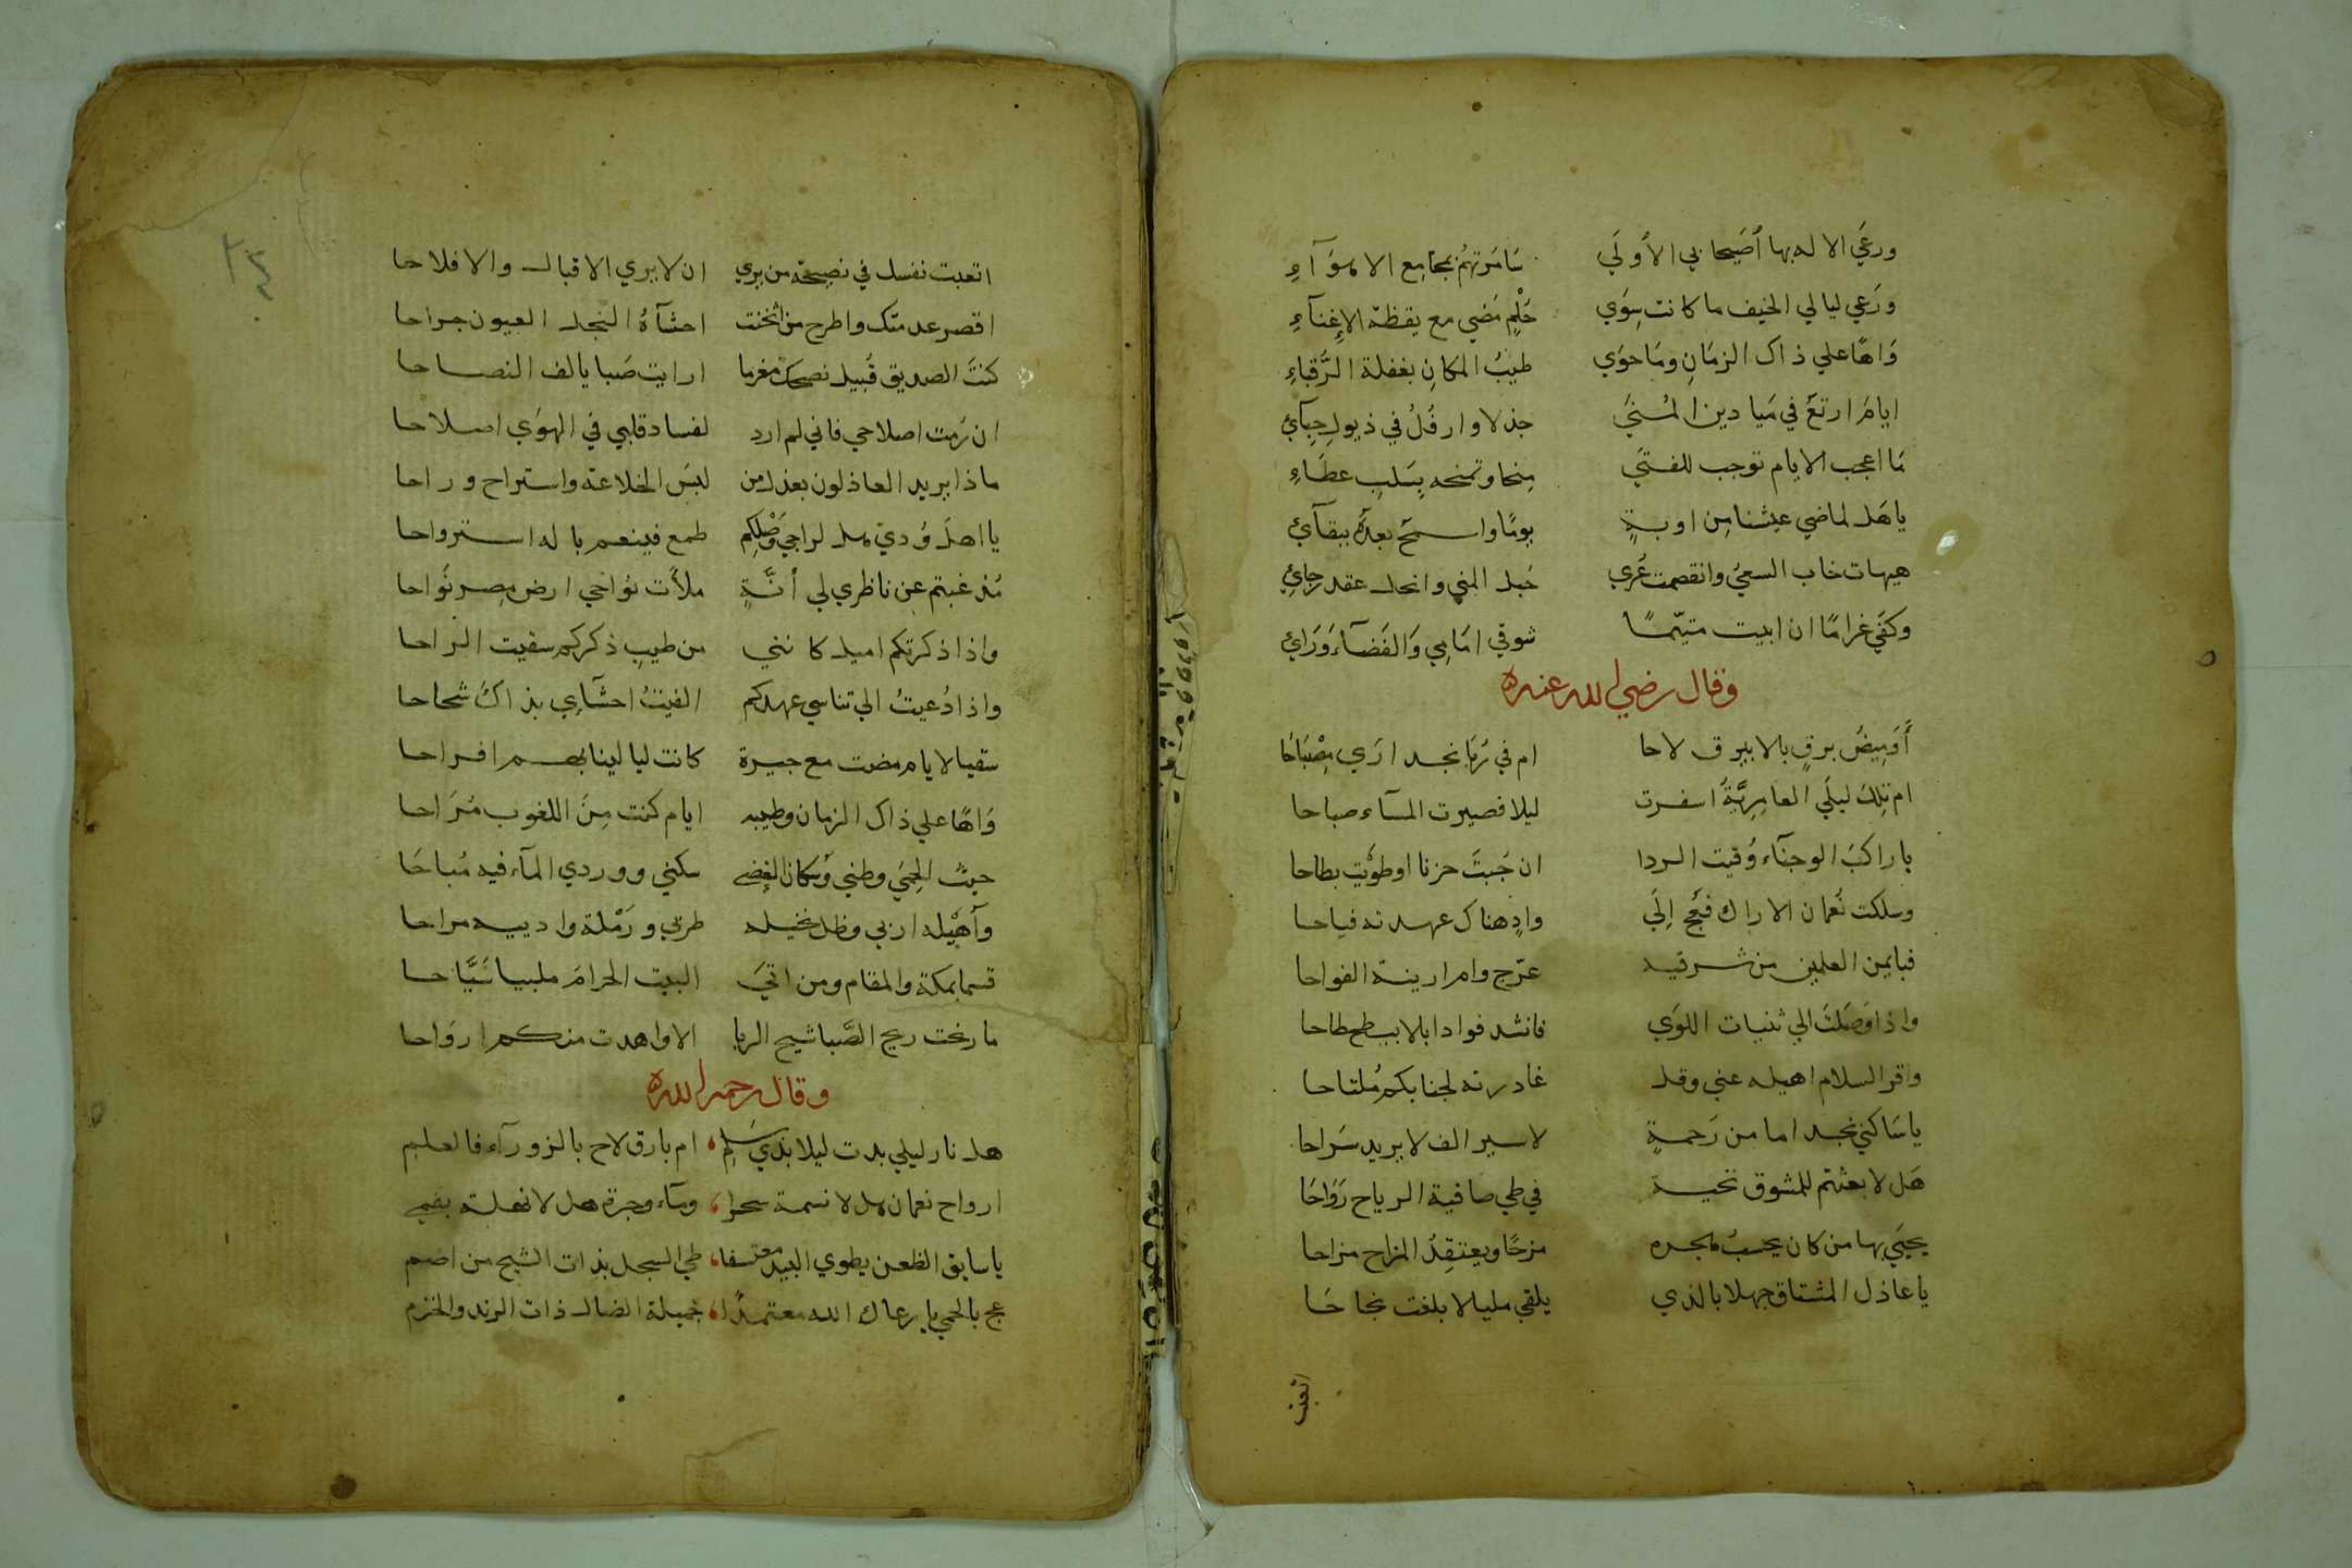 ورعَي الاله بها اُصَيحابي الأولَي سَامَرتهُم بمجامِع الاهوَآءِ
ورَعي ليالي الخيف ما كانت سِوَي حُلْمٍ مَضي مع يقظة الاِغنآءِ
وَاهًا علي ذاك الزمَانِ ومَا حوَي طيبُ المكانِ بغفلة الرُّقباءِ
ايامَ ارتعَ في مَيادين المُنيَ جذلا وارفُلُ في ذيولِ حِبآئ
مَا اعجب الايام توجب للفتيَ مِنحا وتمنحه بِسَلبِ عطَاءِ
يا هَل لماضي عيشنا مِن اوبةٍ يومًا واسمَح بعدَهُ ببقآئ
هيهات خاب السعيُ وانقصمت عُري حَبل المني وانحل عقد رجائ
وكفَي غرامًا ان ابيت متيّمًا شوقي امَامي وَالقضآءُ وَرَائ
وقال رضي الله عنه
أَوَمِيضُ برقٍ بالابيرق لاحا ام في رُبَا نجد ارَي مِصْبَاحَا
ام تِلكَ ليلَي العامِرِيَّةُ اسفرت ليلا فصيرت المسآء صباحا
يا راكبَ الوجنآء وُقيت الردا ان جُبتَ حزنا او طوَيت بطاحا
وسلكت نُعمان الاراك فعُج اِلَي وادٍ هناك عهدته فياحا
فبايمن العلمين من شرقيه عرّج وام ارينه الفواحا
واذا وَصَلتَ الي ثنيات اللوَي فانشد فوادا بالابيطح طاحا
واقر السلام اهيله عني وقل غادرته لجنابكم مُلتاحا
يا سَاكني نجد اما من رَحمةٍ لاسير الف لا يريد سَراحا
هَل لا بعثتم للمشوق تحية في طي صافية الرياح رَوَاحَا
يحيَي بها من كان يحسبُ هجره مزحًا ويعتقِدُ المزاح مزاحا
يا عاذل المشتاق جهلا بالذي يلقي مليا لا بلغت نجاحَا
اتعبت
اتعبت نفسك في نصيحة من يري ان لا يري الاقبال والافلاحا
اقصر عدمتك واطرح من اثخنت احشآءُهُ النجل العيون جراحا
كنتَ الصديق قُبيل نصحك مغرما ارايت صَبا يالف النصاحا
ان رُمت اصلاحي فاني لم ارد لفساد قلبي في الهوَي اصلاحا
ماذا يريد العاذلون بعذل من لبسَ الخلاعة واستراح وراحا
يا اهلَ وُدي هل لراجي وَصْلِكم طمع فينعم باله استرواحا
مُذ غبتم عن ناظري لي أنَّةٍ ملأت نواحي ارض مِصر نُواحا
واذا ذكرتكم اميل كانني من طيبِ ذكركم سقيت الراحا
واذا دُعيتُ الي تناسي عهدكم الفيتُ احشَآءِي بذاك شحاحا
سقيا لايام مضت مع جيرة كانت ليالينا بهم افراحا
وَاهًا علي ذاك الزمان وطيبه ايام كنت مِنَ اللغوب مُرَاحا
حيثُ الحِمَي وطني وَسُكان الغضي سكني ووردي المآء فيه مُباحَا
وأهَيْله اربي وظل نخيله طربي ورَمْلة وادييه مراحا
قسما بمكة والمقام ومن اتيَ البيت الحرامَ ملبيا سَيَّاحا
ما رنحت ريح الصَّبا شيح الربا الا واهدت منكم ارواحا
وقال رحمه الله
هل نار ليلي بدت ليلا بذي سَلِم ام بارق لاح بالزورآء فالعلم
ارواح نعمان هل لا نسمة سحرا ومآء وجرة هل لا نهلة بفمي
يا سايق الظعن يطوي البيد معتسفا طي السجل بذات الشيح من اضم
عج بالحمي يا رعاك الله معتمدًا خميلة الضال ذات الرند والخزم